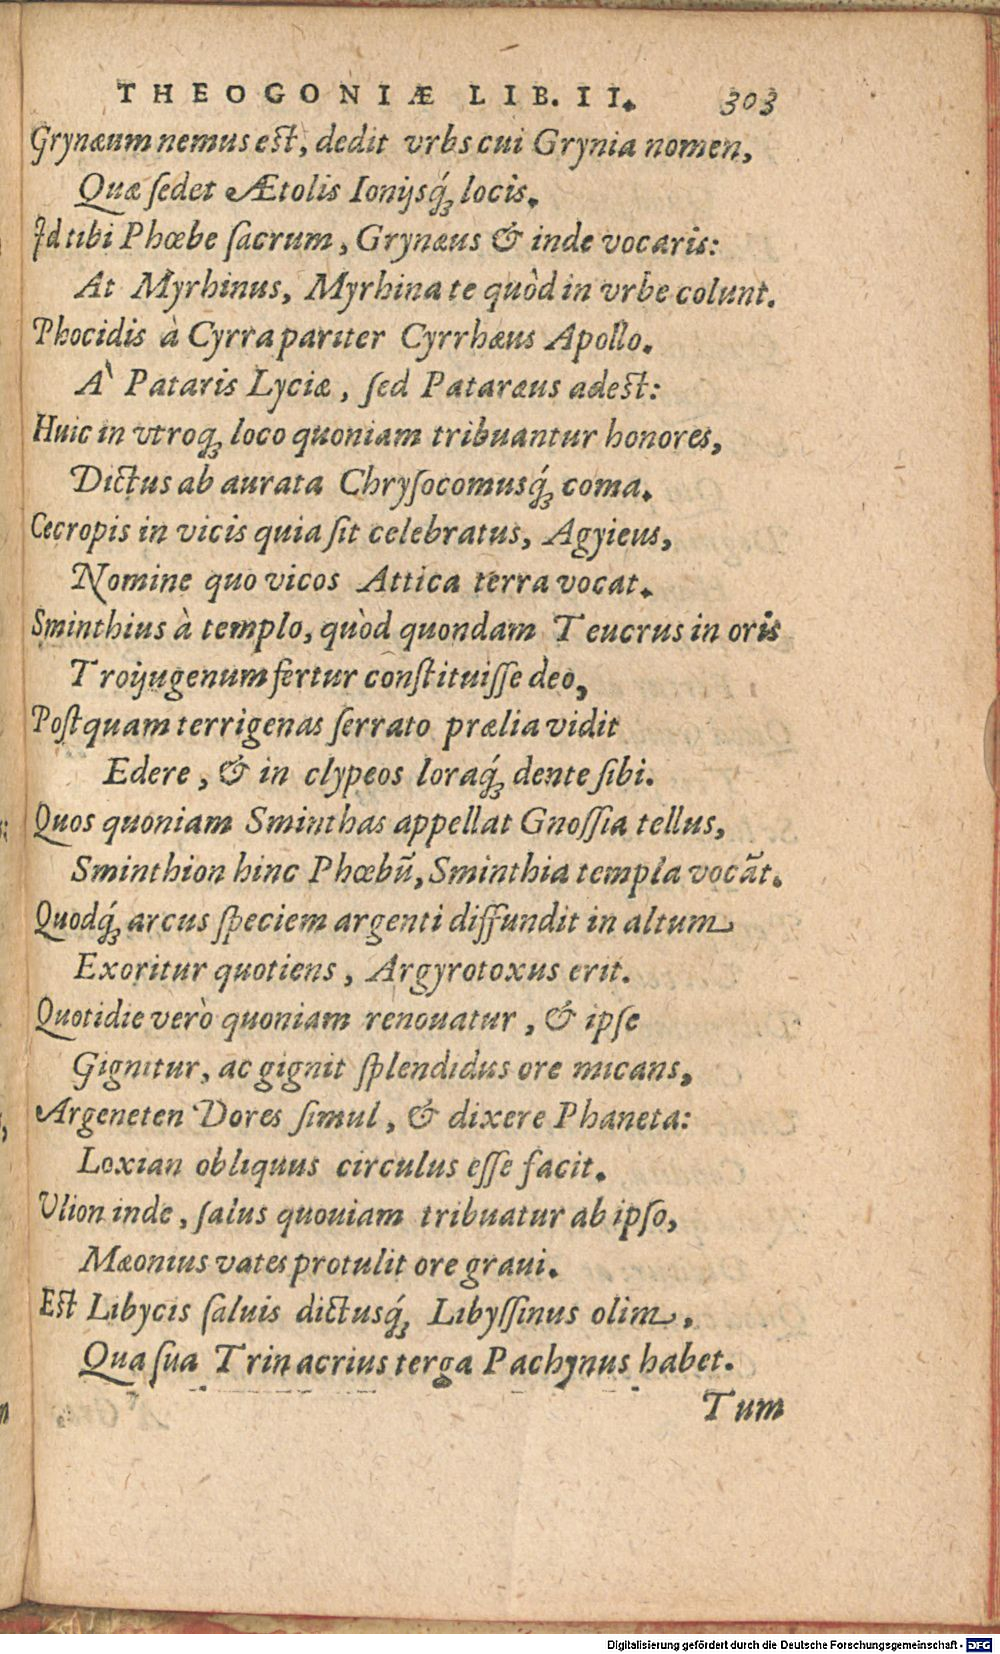 THEOGONIÆ LIB. II. 303
Grynæum nemus est, dedit vrbs cui Grynia nomen,
Quæ ſedet Ætolis Ionijsq́ꝫ locis.
Id tibi Phœbe ſacrum, Grynæus & inde vocaris:
At Myrhinus, Myrhina te quòd in vrbe colunt.
Phocidis à Cyrra pariter Cyrrhæus Apollo.
A` Pataris Lyciæ, ſed Pataræus adest:
Huic in vtroqꝫ loco quoniam tribuantur honores,
Dictus ab aurata Chryſocomusq́ꝫ coma.
Cecropis in vicis quia ſit celebratus, Agyieus,
Nomine quo vicos Attica terra vocat.
Sminthius à templo, quòd quondam Teucrus in oris
Troijugenum fertur conſtituiſſe deo,
Poſtquam terrigenas ſerrato prælia vidit
Edere, & in clypeos loraq́ꝫ dente ſibi.
Quos quoniam Sminthas appellat Gnoſſia tellus,
Sminthion hinc Phœbū, Sminthia templa vocāt.
Quodq́ꝫ arcus ſpeciem argenti diffundit in altum
Exoritur quotiens, Argyrotoxus erit.
Quotidie verò quoniam renouatur, & ipſe
Gignitur, ac gignit ſplendidus ore micans,
Argeneten Dores ſimul, & dixere Phaneta:
Loxian obliquus circulus eſſe facit.
Vlion inde, ſalus quouiam tribuatur ab ipſo,
Mæonius vates protulit ore graui.
Est Libycis ſaluis dictusq́ꝫ Libyſſinus olim,
Qua ſua Trinacrius terga Pachynus habet.
Tum
Digitalisierung gefördert durch die Deutsche Forschungsgemeinschaft - DFG